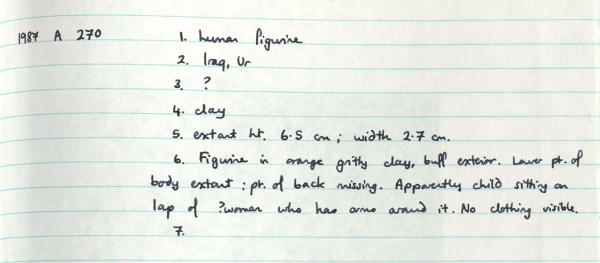 1987 A 270 1. human figurine
2. Iraq, Ur
3. ?
4. clay
5. extant ht. 6.5 cm; width 2.7 cm.
6. Figurine in orange gritty clay, buff exterior. Lower pt. of
body extant; pt. of back missing. Apparently child sitting on
lap of ?woman who has arms around it. No clothing visible.
7.